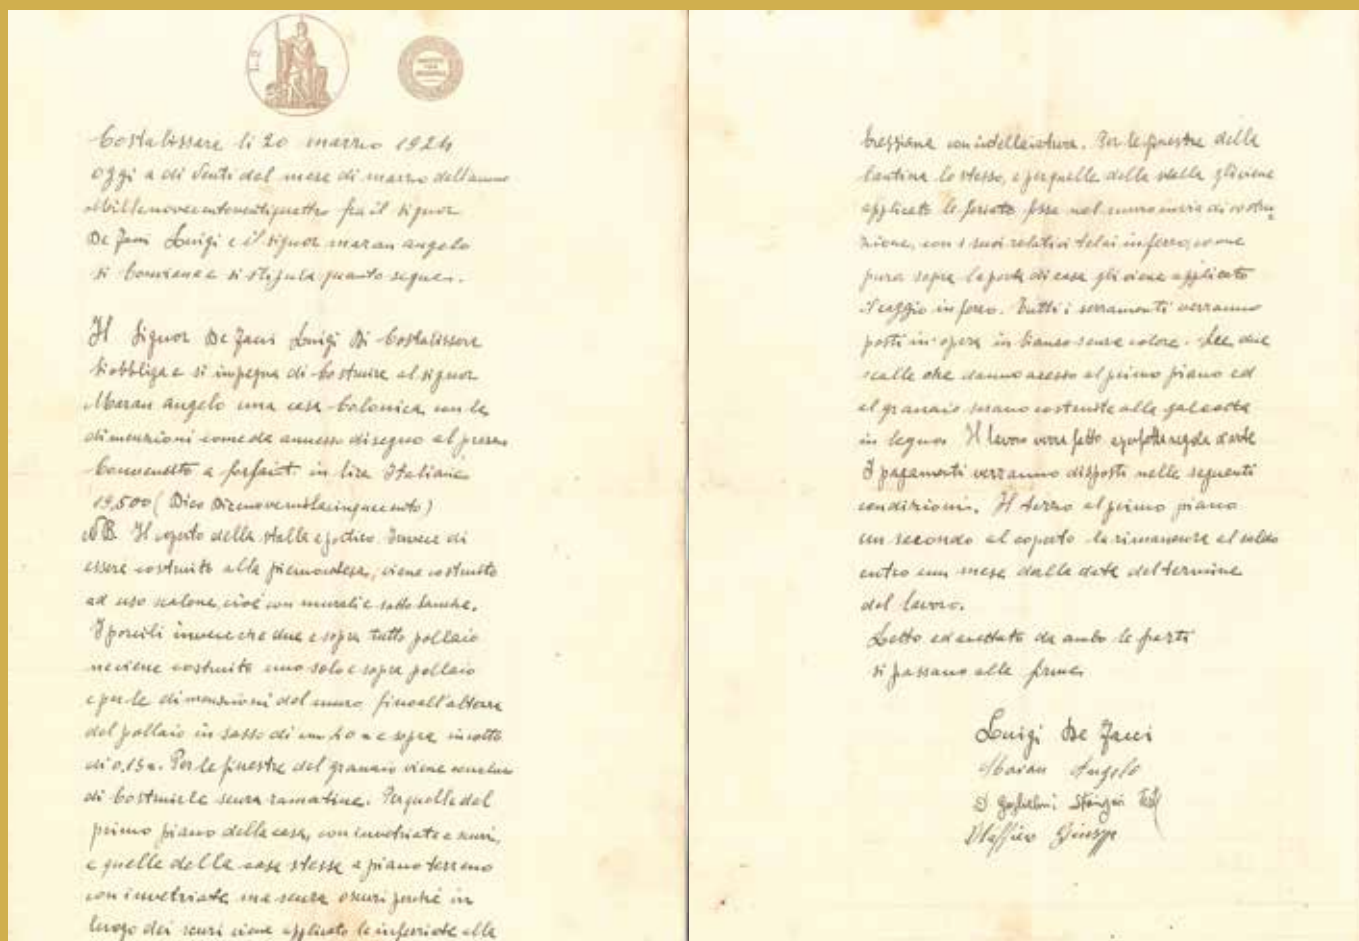 L. 2
Costalissara li 20 marzo 1924
oggi a di Venti del mese di marzo dell'anno
Millenovecentoventiquattro fra il signor
De Zani Luigi e il signor maran angelo
si conviene e si stipula quanto segue.
Il Signor De Zani Luigi Di Costalissara
si obbliga e si impegna di Costruire al signor
Maran angelo una casa Colonica con le
dimenzioni come da annesso disegno al prezzo
Convenuto a forfait in lire Italiane
19,500 (Dico Dicenovemilacinquecento)
NB. Il coperto della stalla e portico Invece di
essere costruito alla piemontese, viene costruito
ad uso salone, cioé con murali e sotto banche.
I porcili invece che due e sopra tutto pollaio
ne viene costruito uno solo e sopra pollaio
e per le dimensioni del muro fino all'altezza
del pollaio in sasso di e sopra in cotto
di 0,13 . Per le finestre del granaio viene
di Costruirle senza ramatine. Per quelle del
primo piano della casa, con invetriate e scuri,
e quelle della casa stessa a piano terreno
con invetriate ma senza oscuri perché in
luogo dei scuri viene applicato le inferriate alla
bressiana con intellaiatura. Per le finestre della
Cantina lo stesso, e per quelle della stalla gli viene
applicate le feriate fisse nel muro in via di costru
zione, con i suoi relativi telai in ferro, come
pure sopra la porta di casa gli viene applicato
il raggio in ferro. Tutti i serramenti verranno
posti in opera in bianco senza colore. Lee due
scalle che danno acesso al primo piano ed
al granaio serano costruite alla galeotta
in legno. Il lavoro verra fatto a perfetta regola d'arte
I pagamenti verranno disposti nelle seguenti
condizioni. Il terzo al primo piano
un secondo al coperto la rimanenza al saldo
entro un mese dalla data del termine
del lavoro.
Letto ed accettato da ambo le parti
si passano alle firme
Luigi De Zani
Maran Angelo
Test
Giusepp